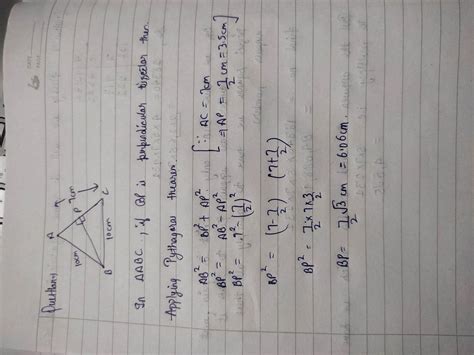 Question
A
7
P
7cm
C
10cm
10cm
B
In ΔABC, if BP is perpendicular bisector then
Applying Pythagoras theorem.
AB² = BP² + AP²
BP² = AB² - AP² [∵ AC = 7cm
BP² = 7² - (7/2)² ⇒ AP = 7/2 cm = 3.5cm]
BP² = (7 - 7/2) (7 + 7/2)
BP² = 7/2 × 7 × 3/2
BP = 7/2 √3 cm = 6.06cm.